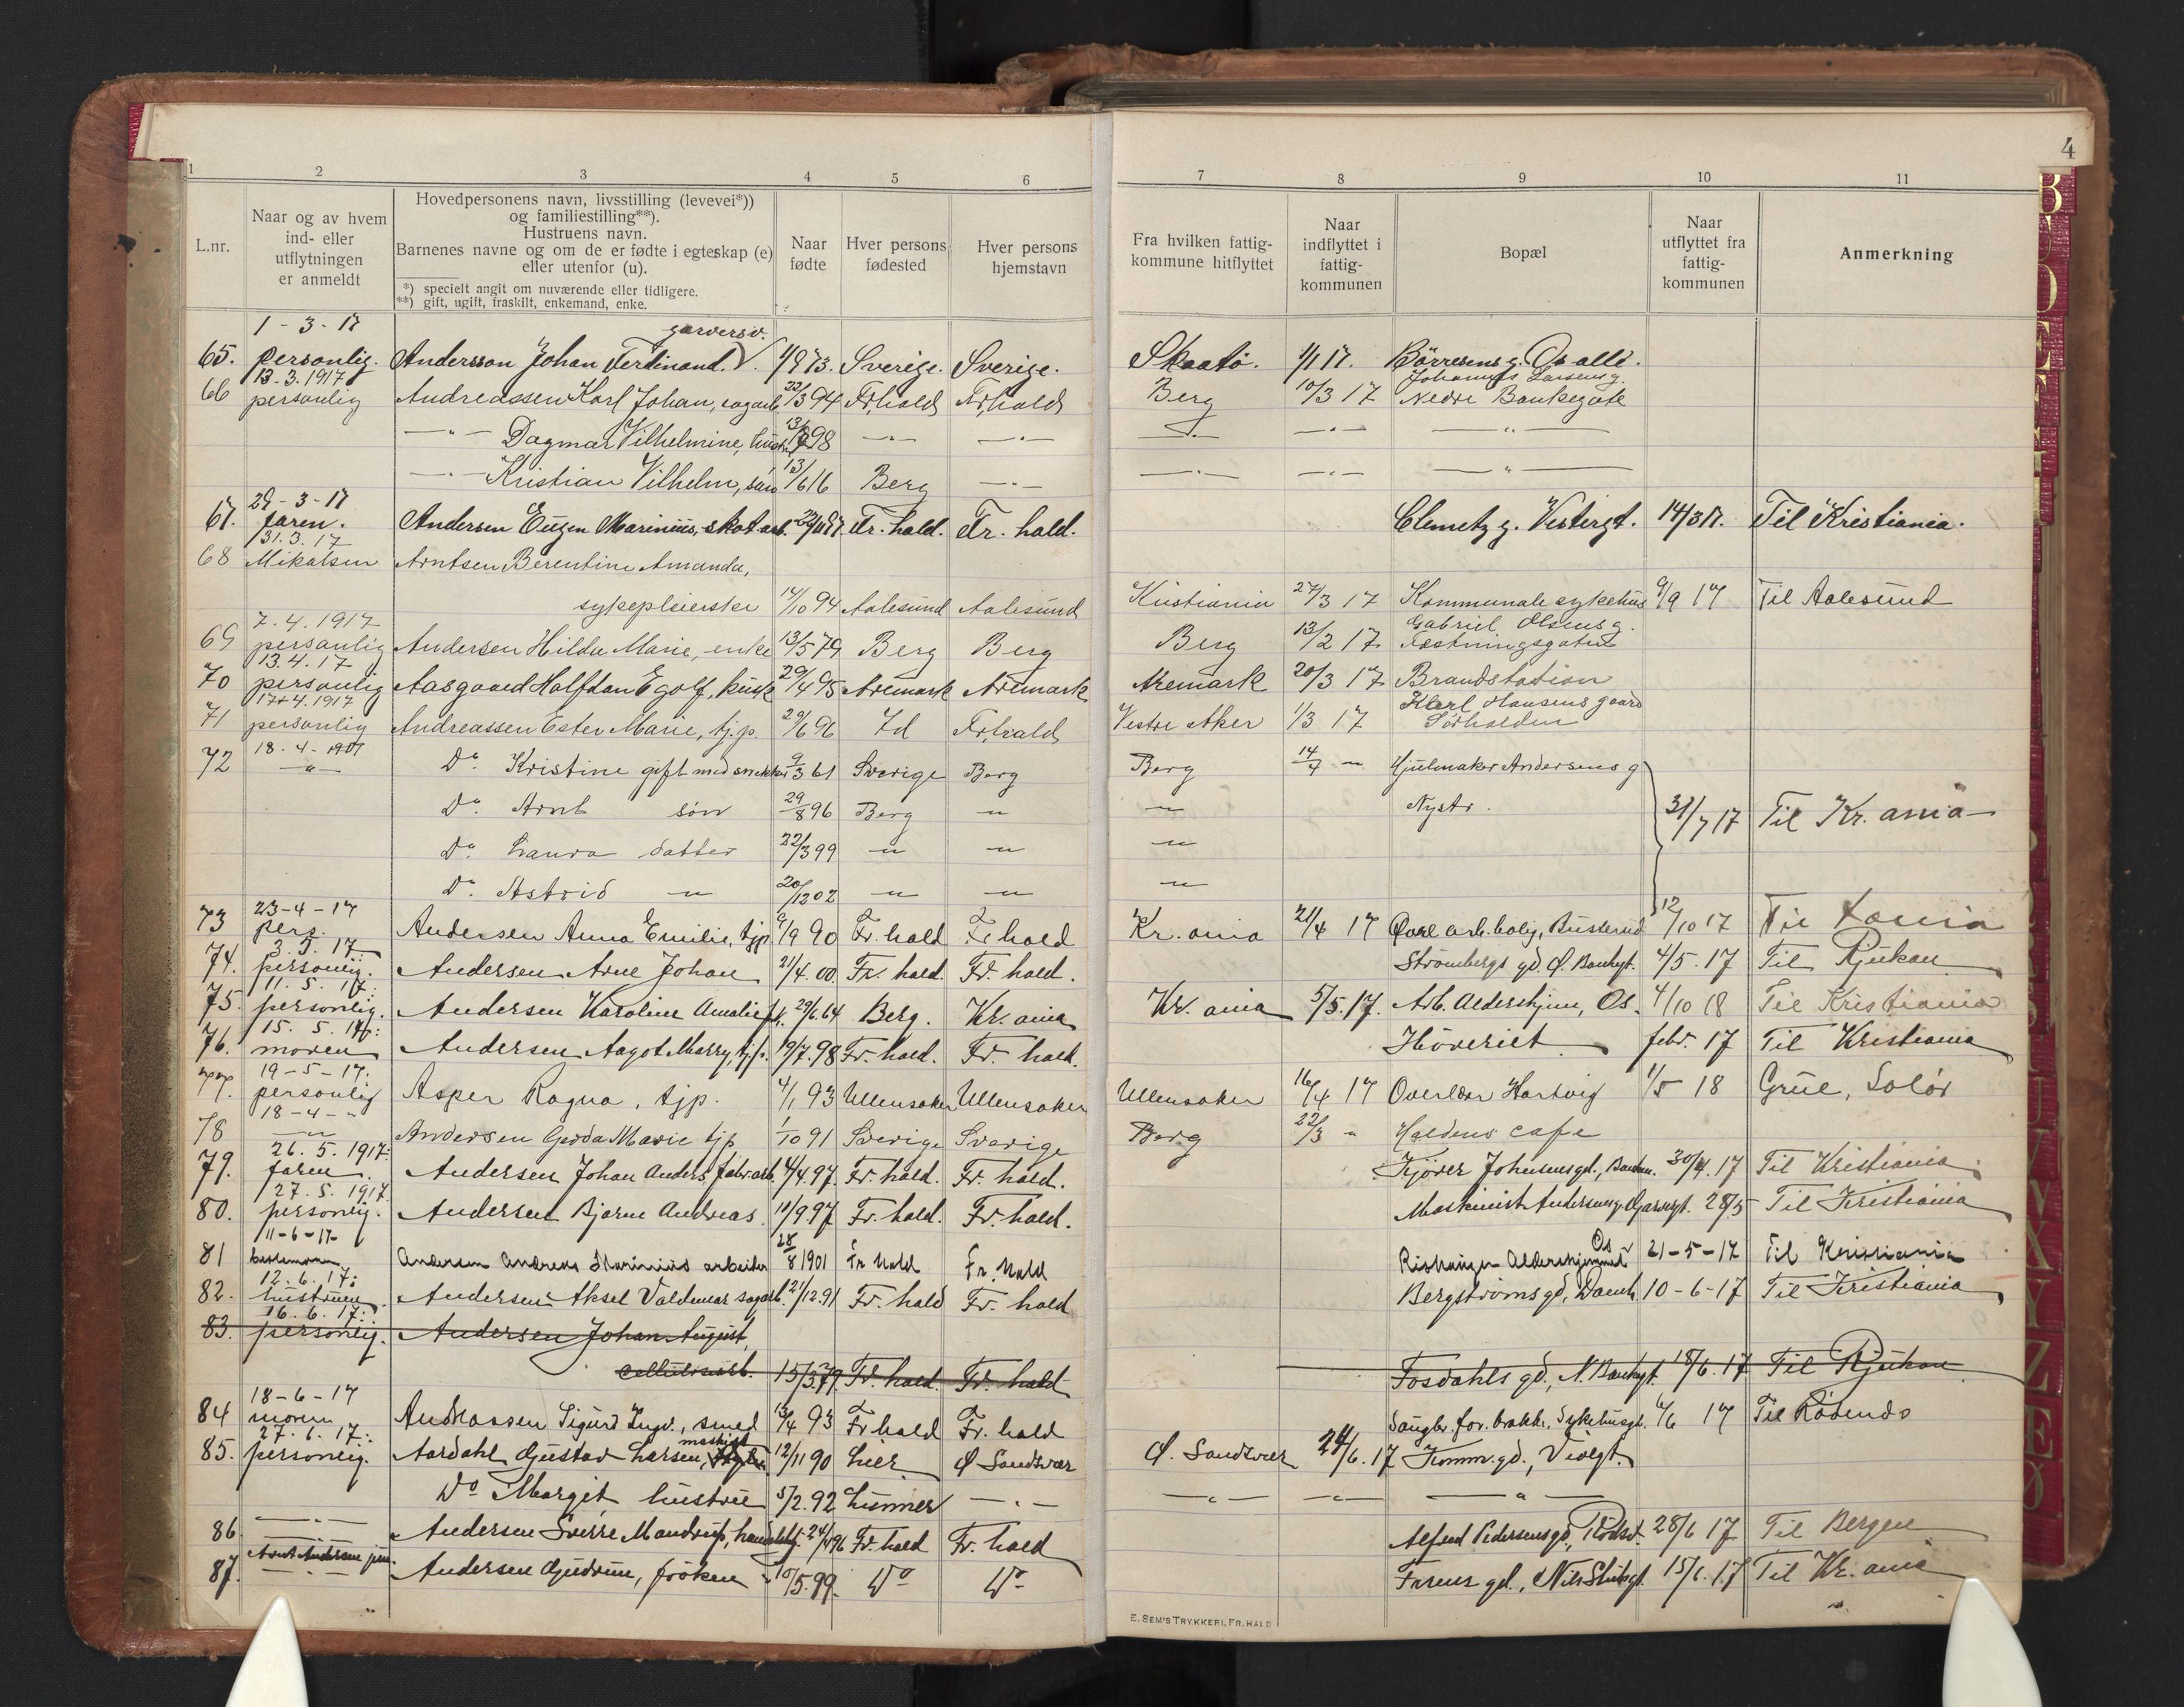 4
1 2 3 4 5 6 7 8 9 10 11
L.nr.
Naar og av hvem ind- eller utflytningen er anmeldt
Hovedpersonens navn, livsstilling (levevei*)) og familiestilling**).
Hustruens navn.
Barnenes navne og om de er fødte i egteskap (e) eller utenfor (u).
*) specielt angit om nuværende eller tidligere.
**) gift, ugift, fraskilt, enkemand, enke.
Naar fødte
Hver persons fødested
Hver persons hjemstavn
Fra hvilken fattigkommune hitflyttet
Naar indflyttet i fattigkommunen
Bopæl
Naar utflyttet fra fattigkommunen
Anmerkning
1-3-17 garversv.
65. personlig. Andersson Johan Ferdinand. 1/9 73. Sverige. Sverige. Skaatö. 1/1 17. Börresens g. Os allé.
13.3.1917 Johannes Larsens g.
66 personlig Andreassen Karl Johan, sagarb. 22/3 94 Fr.hald Fr.hald Berg 10/3 17 Nedre Bankegate
—"— Dagmar Vilhelmine, hustr. 98 —"— —"— —"— —"— —"—
—"— Kristian Vilhelm, sön 13/6 16 Berg —"— —"— —"— —"—
29-3-17
67. faren. Andersen Eugen Marinius, skotarb. Fr. hald. Fr. hald. Clemetz g. Vestergt. 14/3 17. Til Kristiania.
31.3.17
68 Mikalsen Arntsen Berentine Amanda,
sykepleierske 14/10 94 Aalesund Aalesund Kristiania 27/3 17 Kommunale sykehus 9/9 17 Til Aalesund
7.4.1917 Gabriel Olsens g.
69 personlig Andersen Hilda Marie, enke 13/5 79 Berg Berg Berg 13/2 17 Festningsgaten
13.4.17
70 personlig Aasgaard Halfdan Egolf, kusk 29/4 95 Aremark Aremark Aremark 20/3 17 Brandstation
17+4.1917 Karl Hansens gaard
71 personlig Andreassen Ester Marie, tj.p. 29/6 96 Id Fr.hald Vestre Aker 1/3 17 Sörhalden
18-4-1917
72 —"— Do. Kristine gift med snekker 9/3 61 Sverige Berg Berg 14/4 — Hjulmaker Andersens g
Do. Arnt sön 29/8 96 Berg —"— —"— Nystr. 31/7 17 Til Kr.ania
Do. Laura datter 22/3 99 —"— —"— —"—
Do. Astrid —"— 20/12 02 —"— —"— —"—
23-4-17
73 pers. Andersen Anna Emilie, tjp 9/9 90 Fr.hald Fr.hald Kr.ania 21/4 17 arb.bolig, Busterud 12/10 17 Til Kania
3.5.17
74. personlig. Andersen Arne Johan 21/4.00 Fr.hald. Fr.hald. Strömbergs gd. Ö. Bankgt. 4/5.17 Til Rjukan
11.5.17.
75. personlig. Andersen Karoline Amalie 29/6.64 Berg. Kr.ania Kr.ania 5/5.17. Arb. Aldershjem, Os. 4/10 18 Til Kristiania
15.5.17.
76. moren Andersen Aagot Marry, tj.p. 19/7.98 Fr.hald. Fr.hald. Höveriet febr. 17 Til Kristiania
19-5-17.
77. personlig Asper Ragna, tjp. 4/1 93 Ullensaker Ullensaker Ullensaker 16/4 17 Overlær Hartvig 1/5 18 Grue, Solör
18-4-"
78 —"— Andersen Gerda Marie tjp /10 91 Sverige Sverige Berg 22/3 " Haldens cafe
26.5.1917.
79. faren. Andersen Johan Anders, fabr.arb. 4/4.97. Fr.hald. Fr.hald. Kjörer Johnsens gd., 30/4.17 Til Kristiania.
27.5.1917
80. personlig. Andersen Bjarne Andreas 11/9.97 Fr.hald. Fr.hald. Maskinist Andersens g. Garvergt. 28/5 Til Kristiania
11-6-17
81 Andersen Andreas Marinius arbeider 28/8 1901 Fr Hald Fr. Hald Aldershjemmet Os 21-5-17 Til Kristiania
12.6.17.
82. hustruen. Andersen Aksel Valdemar sagarb. 21/12.91 Fr.hald Fr.hald Bergströms gd, Damh. 10-6-17 Til Kristiania
16.6.17.
83. personlig. Andersen Johan August,
cellulosearb. 15/3.79. Fr.hald. Fr.hald Fosdahls gd., N. Bankgt. 18/6.17 Til Rjukan
18-6-17
84 moren Andreassen Sigurd Ingv., smed 13/4 93 Fr.hald Fr.hald Saugbr.for. brakke, Sykehusgt. 6/6 17 Til
27.6.17. maskinist
85. personlig. Aardahl Gustav Larsen, 12/11 90 Lier Ø Sandsvær Ø. Sandsvær 24/6.17 Komm. gd., Violgt.
Do Margit hustru 5/2.92 Lunner —"— —"— —"— —"—
86. —"— Andersen Sverre Mandrup, Fr.hald Fr.hald Alfred Pedersens gd., Rödsv. 28/6 17 Til Bergen
Arnt Andersen jun.
87. —"— Andersen Gudrun, fröken 10/5.99. Do Do Farens gd., Nils Stubsgt. 15/6.17 Til Kr.ania
E. SEM'S TRYKKERI, FR.HALD